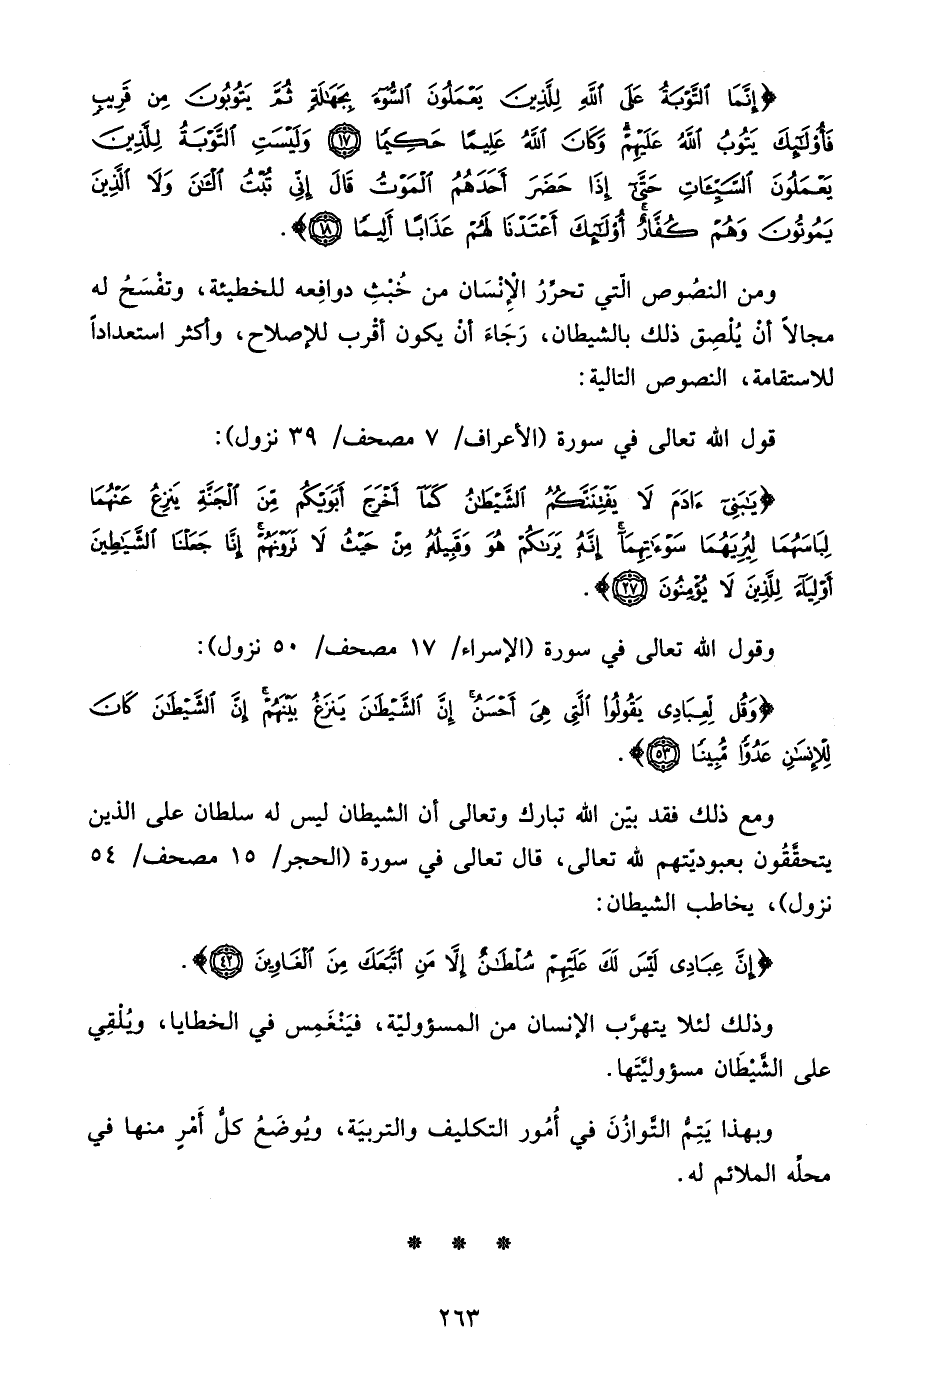 ﴿إِنَّمَا ٱلتَّوْبَةُ عَلَى ٱللَّهِ لِلَّذِينَ يَعْمَلُونَ ٱلسُّوٓءَ بِجَهَٰلَةٍ ثُمَّ يَتُوبُونَ مِن قَرِيبٍ
فَأُو۟لَٰٓئِكَ يَتُوبُ ٱللَّهُ عَلَيْهِمْ ۗ وَكَانَ ٱللَّهُ عَلِيمًا حَكِيمًا ١٧ وَلَيْسَتِ ٱلتَّوْبَةُ لِلَّذِينَ
يَعْمَلُونَ ٱلسَّيِّـَٔاتِ حَتَّىٰٓ إِذَا حَضَرَ أَحَدَهُمُ ٱلْمَوْتُ قَالَ إِنِّى تُبْتُ ٱلْـَٰٔنَ وَلَا ٱلَّذِينَ
يَمُوتُونَ وَهُمْ كُفَّارٌ ۚ أُو۟لَٰٓئِكَ أَعْتَدْنَا لَهُمْ عَذَابًا أَلِيمًا ١٨﴾.
ومن النصُوص الّتي تحرِّرُ الْإِنْسَان من خُبْثِ دوافِعه للخطيئة، وتفْسَحُ له
مجالاً أنْ يُلْصِق ذلك بالشيطان، رَجَاءَ أنْ يكون أقْرب للإصلاح، وأكثر استعداداً
للاستقامة، النصوص التالية:
قول الله تعالى في سورة (الأعراف/ ٧ مصحف/ ٣٩ نزول):
﴿يَٰبَنِىٓ ءَادَمَ لَا يَفْتِنَنَّكُمُ ٱلشَّيْطَٰنُ كَمَآ أَخْرَجَ أَبَوَيْكُم مِّنَ ٱلْجَنَّةِ يَنزِعُ عَنْهُمَا
لِبَاسَهُمَا لِيُرِيَهُمَا سَوْءَٰتِهِمَآ ۗ إِنَّهُۥ يَرَىٰكُمْ هُوَ وَقَبِيلُهُۥ مِنْ حَيْثُ لَا تَرَوْنَهُمْ ۗ إِنَّا جَعَلْنَا ٱلشَّيَٰطِينَ
أَوْلِيَآءَ لِلَّذِينَ لَا يُؤْمِنُونَ ٢٧﴾.
وقول الله تعالى في سورة (الإسراء/ ١٧ مصحف/ ٥٠ نزول):
﴿وَقُل لِّعِبَادِى يَقُولُوا۟ ٱلَّتِى هِىَ أَحْسَنُ ۚ إِنَّ ٱلشَّيْطَٰنَ يَنزَغُ بَيْنَهُمْ ۚ إِنَّ ٱلشَّيْطَٰنَ كَانَ
لِلْإِنسَٰنِ عَدُوًّا مُّبِينًا ٥٣﴾.
ومع ذلك فقد بيّن الله تبارك وتعالى أن الشيطان ليس له سلطان على الذين
يتحقَّقُون بعبوديّتهم لله تعالى، قال تعالى في سورة (الحجر/ ١٥ مصحف/ ٥٤
نزول)، يخاطب الشيطان:
﴿إِنَّ عِبَادِى لَيْسَ لَكَ عَلَيْهِمْ سُلْطَٰنٌ إِلَّا مَنِ ٱتَّبَعَكَ مِنَ ٱلْغَاوِينَ ٤٢﴾.
وذلك لئلا يتهرَّب الإنسان من المسؤوليّة، فيَنْغَمِس في الخطايا، ويُلْقِي
على الشَّيْطَان مسؤوليَّتَها.
وبهذا يَتِمُّ التَّوازُنَ في أُمُور التكليف والتربيَة، ويُوضَعُ كلُّ أَمْرٍ منها في
محلّه الملائم له.
* * *
٢٦٣